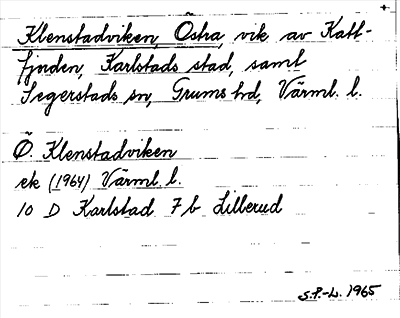 +
Klenstadviken, Östra, vik av Katt-
fjorden, Karlstads stad, samt
Segerstads sn, Grums hd, Värml. l.
Ö. Klenstadviken
ek (1964) Värml. l.
10 D Karlstad 7 b Lillerud
S.P.-L. 1965